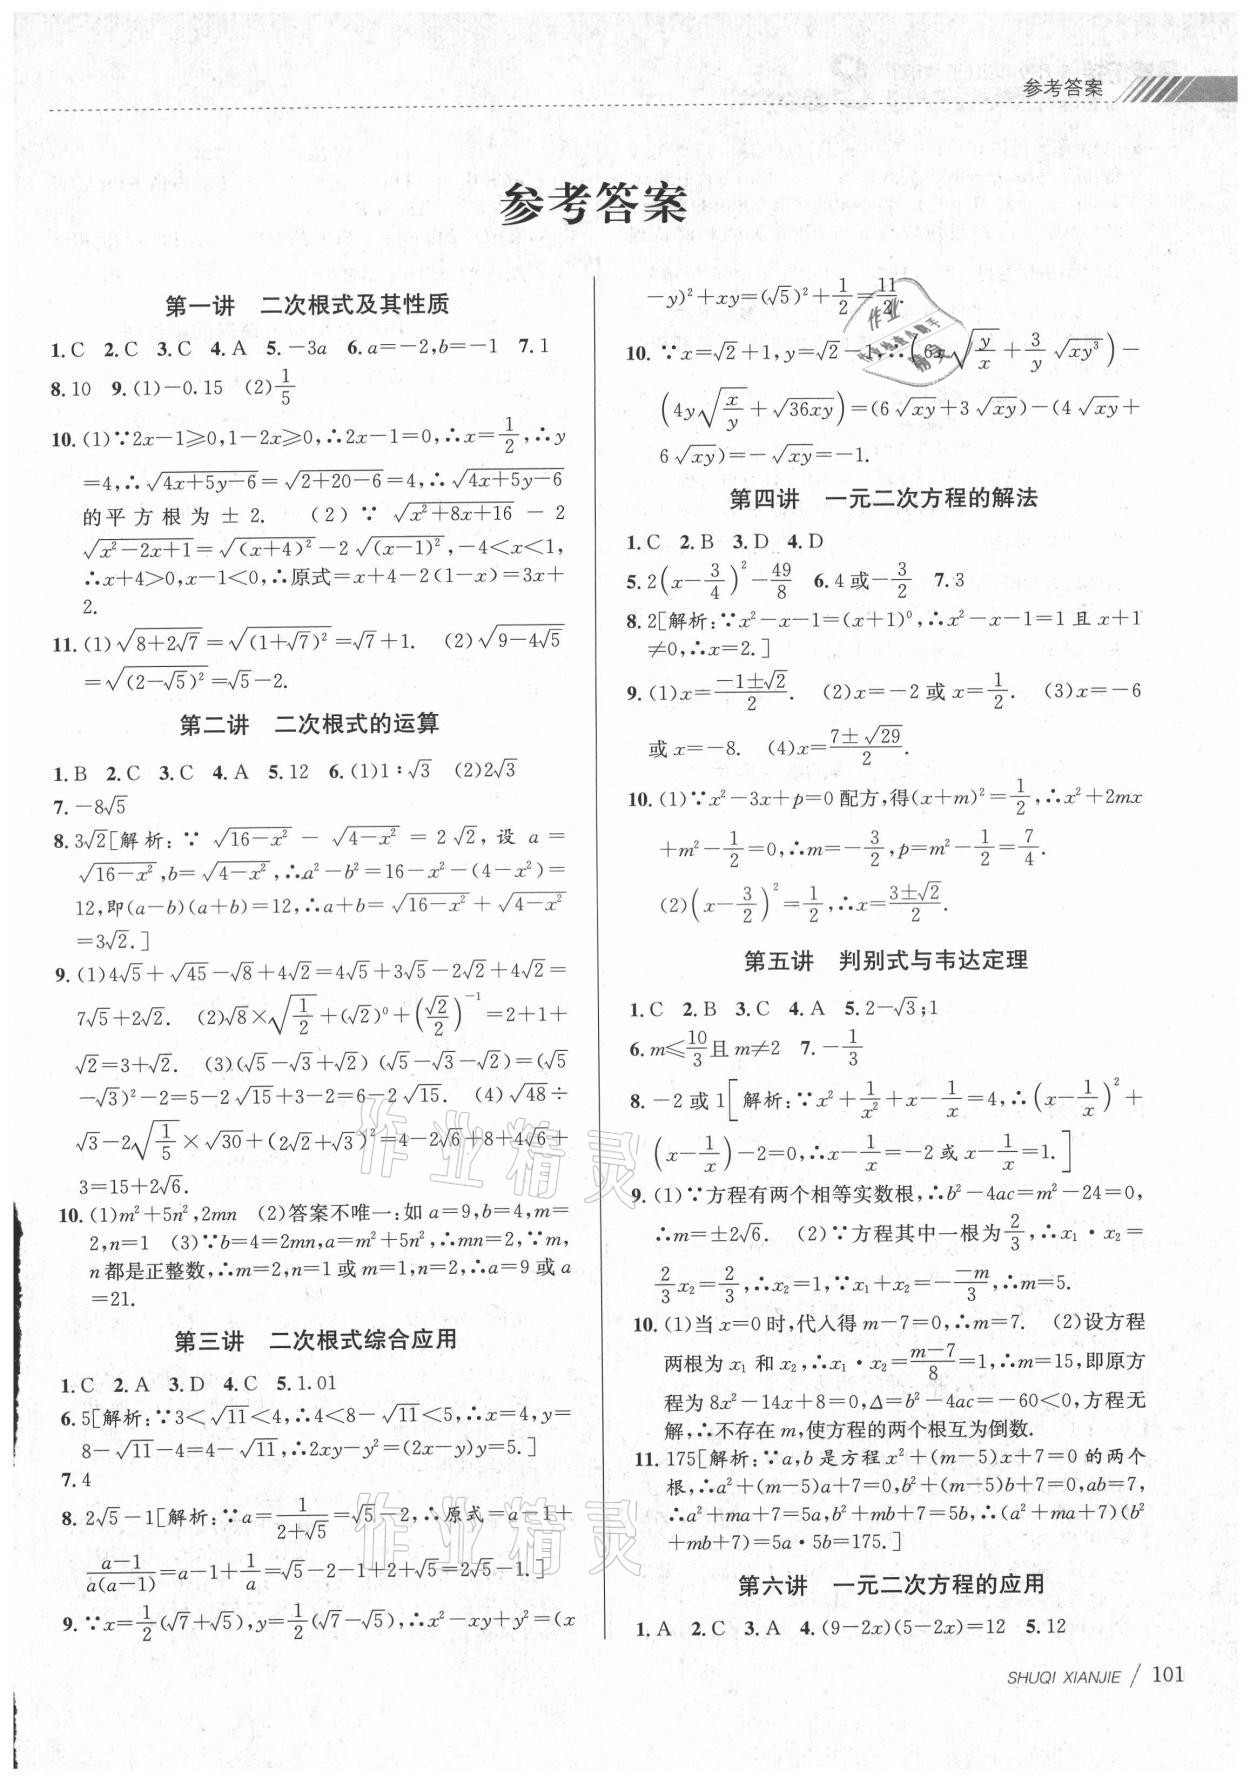 参考答案
参考答案
第一讲 二次根式及其性质
1. C 2. C 3. C 4. A 5. −3a 6. a=−2,b=−1 7. 1
8. 10 9. (1)−0.15 (2)1/5
10. (1)∵2x−1≥0,1−2x≥0,∴2x−1=0,∴x=1/2,∴y
=4,∴√(4x+5y−6)=√(2+20−6)=4,∴√(4x+5y−6)
的平方根为±2. (2)∵√(x²+8x+16)−2
√(x²−2x+1)=√((x+4)²)−2√((x−1)²),−4<x<1,
∴x+4>0,x−1<0,∴原式=x+4−2(1−x)=3x+
2.
11. (1)√(8+2√7)=√((1+√7)²)=√7+1. (2)√(9−4√5)
=√((2−√5)²)=√5−2.
第二讲 二次根式的运算
1. B 2. C 3. C 4. A 5. 12 6. (1)1∶√3 (2)2√3
7. −8√5
8. 3√2[解析:∵√(16−x²)−√(4−x²)=2√2,设a=
√(16−x²),b=√(4−x²),∴a²−b²=16−x²−(4−x²)=
12,即(a−b)(a+b)=12,∴a+b=√(16−x²)+√(4−x²)
=3√2.]
9. (1)4√5+√45−√8+4√2=4√5+3√5−2√2+4√2=
7√5+2√2. (2)√8×√(1/2)+(√2)⁰+(√2/2)⁻¹=2+1+
√2=3+√2. (3)(√5−√3+√2)(√5−√3−√2)=(√5
−√3)²−2=5−2√15+3−2=6−2√15. (4)√48÷
√3−2√(1/5)×√30+(2√2+√3)²=4−2√6+8+4√6+
3=15+2√6.
10. (1)m²+5n²,2mn (2)答案不唯一:如a=9,b=4,m=
2,n=1 (3)∵b=4=2mn,a=m²+5n²,∴mn=2,∵m,
n都是正整数,∴m=2,n=1或m=1,n=2,∴a=9或a
=21.
第三讲 二次根式综合应用
1. C 2. A 3. D 4. C 5. 1.01
6. 5[解析:∵3<√11<4,∴4<8−√11<5,∴x=4,y=
8−√11−4=4−√11,∴2xy−y²=(2x−y)y=5.]
7. 4
8. 2√5−1[解析:∵a=1/(2+√5)=√5−2,∴原式=a−1+
(a−1)/(a(a−1))=a−1+1/a=√5−2−1+2+√5=2√5−1.]
9. ∵x=1/2(√7+√5),y=1/2(√7−√5),∴x²−xy+y²=(x
−y)²+xy=(√5)²+1/2=11/2.
10. ∵x=√2+1,y=√2−1,∴(6x√(y/x)+3/y√(xy³))−
(4y√(x/y)+√(36xy))=(6√(xy)+3√(xy))−(4√(xy)+
6√(xy))=−√(xy)=−1.
第四讲 一元二次方程的解法
1. C 2. B 3. D 4. D
5. 2(x−3/4)²−49/8 6. 4或−3/2 7. 3
8. 2[解析:∵x²−x−1=(x+1)⁰,∴x²−x−1=1且x+1
≠0,∴x=2.]
9. (1)x=(−1±√2)/2. (2)x=−2或x=1/2. (3)x=−6
或x=−8. (4)x=(7±√29)/2.
10. (1)∵x²−3x+p=0配方,得(x+m)²=1/2,∴x²+2mx
+m²−1/2=0,∴m=−3/2,p=m²−1/2=7/4.
(2)(x−3/2)²=1/2,∴x=(3±√2)/2.
第五讲 判别式与韦达定理
1. C 2. B 3. C 4. A 5. 2−√3;1
6. m≤10/3且m≠2 7. −1/3
8. −2或1[解析:∵x²+1/x²+x−1/x=4,∴(x−1/x)²+
(x−1/x)−2=0,∴x−1/x=−2或x−1/x=1.]
9. (1)∵方程有两个相等实数根,∴b²−4ac=m²−24=0,
∴m=±2√6. (2)∵方程其中一根为2/3,∴x₁·x₂=
2/3x₂=2/3,∴x₂=1,∵x₁+x₂=−(−m)/3,∴m=5.
10. (1)当x=0时,代人得m−7=0,∴m=7. (2)设方程
两根为x₁和x₂,∴x₁·x₂=(m−7)/8=1,∴m=15,即原方
程为8x²−14x+8=0,Δ=b²−4ac=−60<0,方程无
解,∴不存在m,使方程的两个根互为倒数.
11. 175[解析:∵a,b是方程x²+(m−5)x+7=0的两个
根,∴a²+(m−5)a+7=0,b²+(m−5)b+7=0,ab=7,
∴a²+ma+7=5a,b²+mb+7=5b,∴(a²+ma+7)(b²
+mb+7)=5a·5b=175.]
第六讲 一元二次方程的应用
1. A 2. C 3. A 4. (9−2x)(5−2x)=12 5. 12
SHUQI XIANJIE / 101
作业精灵
作业精灵